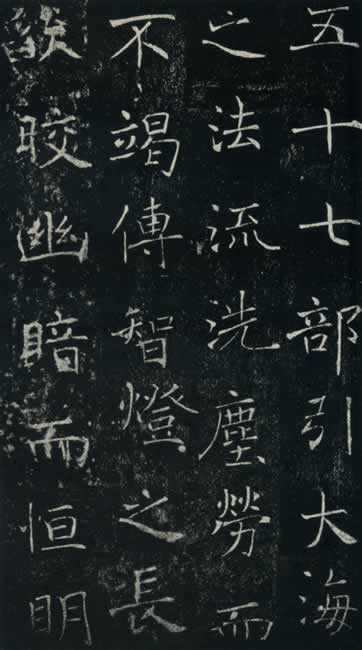 五十七部引大海
之法流洗塵勞而
不竭傳智燈之長
燄晈幽暗而恒明